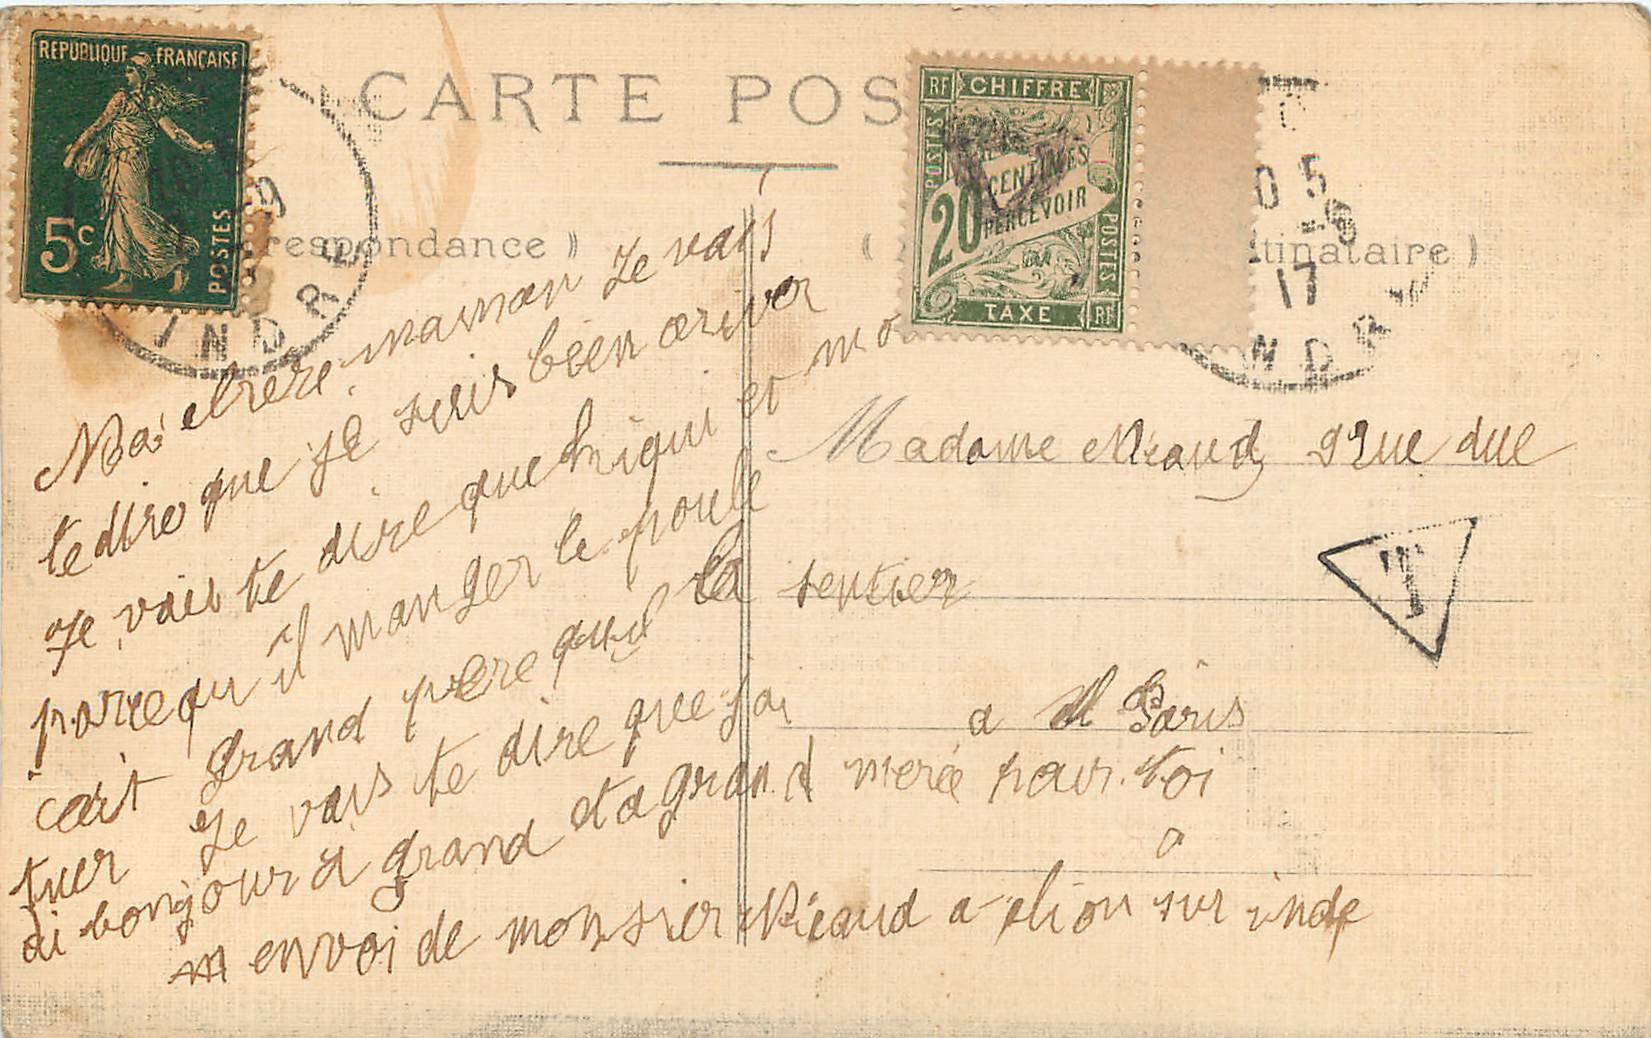 REPUBLIQUE FRANÇAISE
5c
POSTES
INDRE
CARTE POS
respondance )
(
tinataire )
RF CHIFFRE
POSTES
CENTIMES
20
PERCEVOIR
POSTES
TAXE RF
5
17
IND
T
Ma chere maman Je vais
te dire que je suis bien ariver
Je vais te dire que et mo
parce qu il manger le poule
cait grand père qui la
tuer Je vais te dire que jai
di bonjour a grand et a grand meré pour toi
envoi de monsier Niéaud a sur inde
Madame 9 Rue due
sentier
a Paris